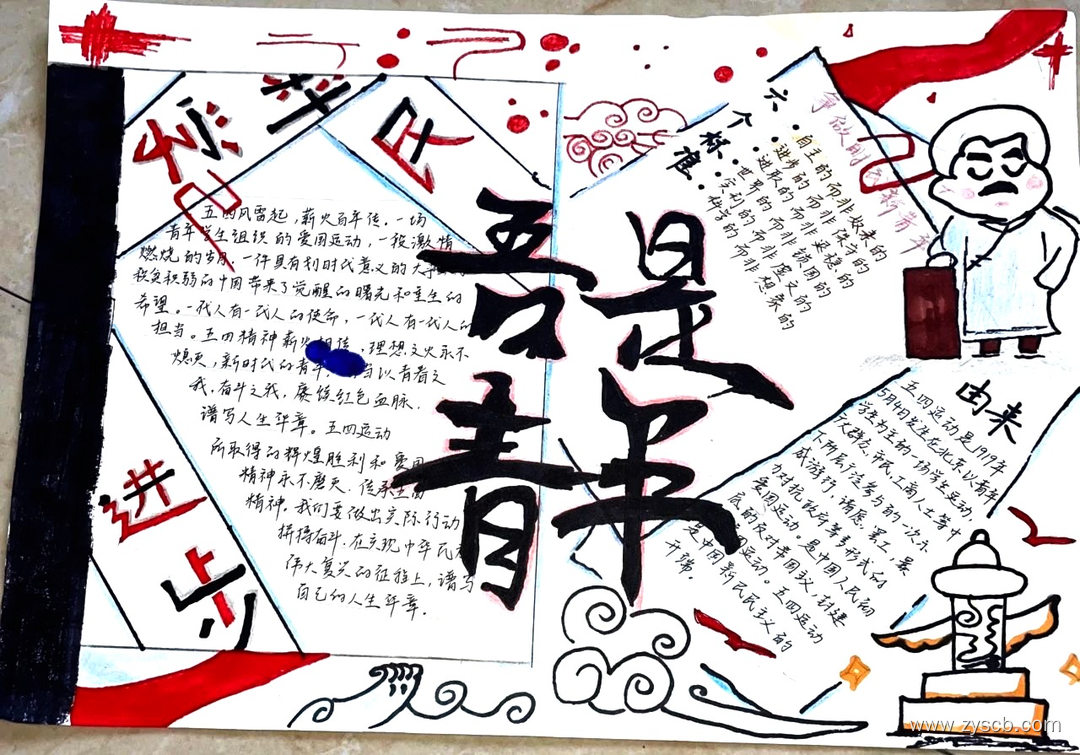 爱国
科学
民
进步
吾是
青年
五四风雷起,薪火百年传。一场
青年学生组织的爱国运动,一段激情
燃烧的岁月,一件具有划时代意义的大事
积贫积弱的中国带来了觉醒的曙光和重生的
希望。一代人有一代人的使命,一代人有一代人的
担当。五四精神薪火相传,理想之火永不
熄灭,新时代的青年 当以青春之
我,奋斗之我,赓续红色血脉,
谱写人生华章。五四运动
所取得的辉煌胜利和爱国
精神永不磨灭,传承
精神。我们要做出实际行动
拼搏奋斗,在实现中华民
伟大复兴的征程上,谱写
自己的人生华章。
六个标准:
自主的而非奴隶的
进步的而非保守的
进取的而非退隐的
世界的而非锁国的
实利的而非虚文的
科学的而非想象的
争做时代新青年
由来
五四运动是1919年
5月4日发生在北京,以青年
学生为主的一场学生运动,
广大群众、市民、工商人士等中
下阶层广泛参与的一次示
威游行,请愿、罢工、暴
力对抗政府等多形式的
爱国运动。是中国人民彻
底的反对帝国主义、封建
爱国运动。五四运动
是中国新民主主义的
开端。
www.zyscb.com